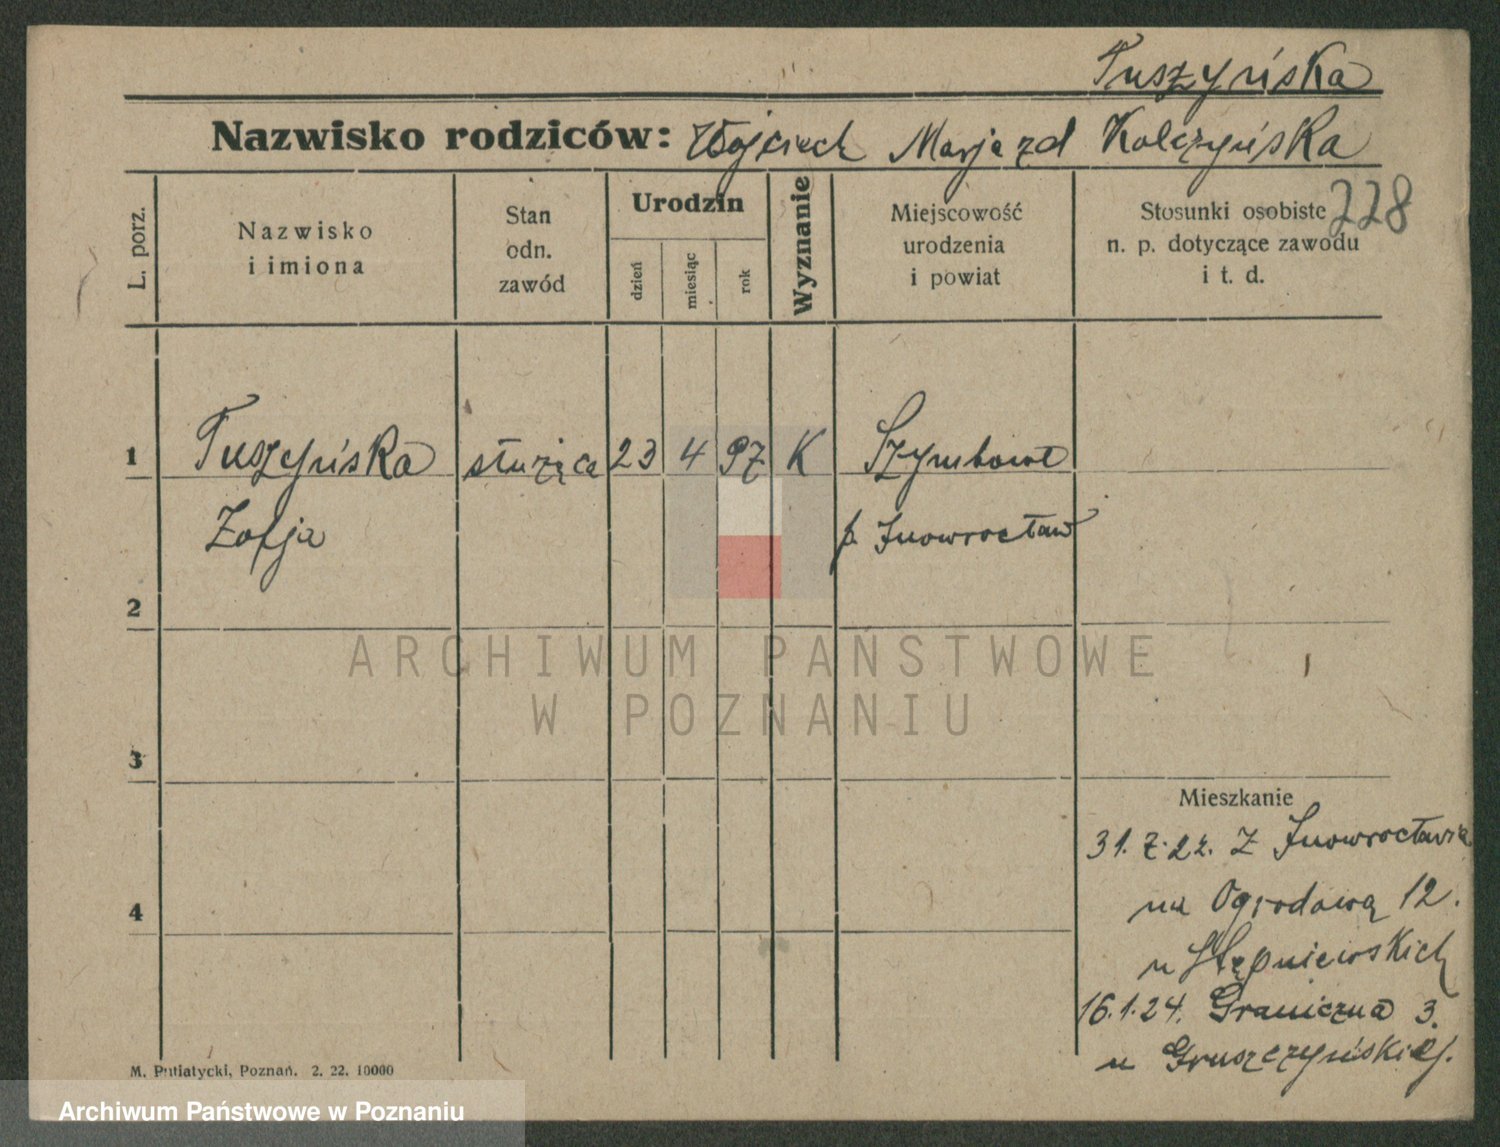 Tuszyńska
Nazwisko rodziców: Wojciech Marja zd Kolczyńska
228
L. porz.
Nazwisko
i imiona
Stan
odn.
zawód
Urodzin
dzień
miesiąc
rok
Wyznanie
Miejscowość
urodzenia
i powiat
Stosunki osobiste
n. p. dotyczące zawodu
i t. d.
1 Tuszyńska służąca 23 4 97 K Szymborze
Zofja p. Inowrocław
2
ARCHIWUM PAŃSTWOWE
W POZNANIU
3
Mieszkanie
31. 7. 22. Z Inowrocławia
4
na Ogrodową 12.
u Stępniewskich
16.1.24. Graniczna 3.
u Gruszczyńskiej.
M. Putiatycki, Poznań. 2. 22. 10000
Archiwum Państwowe w Poznaniu